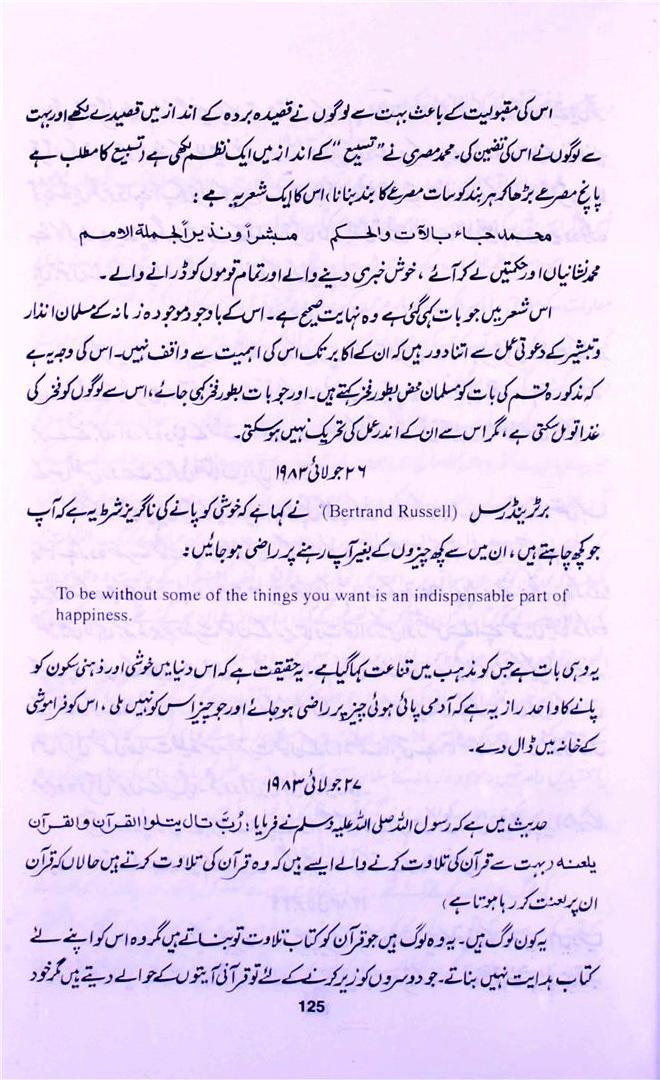 اس کی مقبولیت کے باعث بہت سے لوگوں نے قصیدہ بردہ کے انداز میں قصیدے لکھے اور بہت
سے لوگوں نے اس کی تضمین کی۔ محمد مصری نے "تسبیع" کے انداز میں ایک نظم لکھی ہے (تسبیع کا مطلب ہے
پانچ مصرعے بڑھا کر ہر بند کو سات مصرعے کا بند بنانا) اس کا ایک شعر یہ ہے :
محمد جاء بالآیات والحکم مبشرًا ونذیرًا لجملة الامم
محمد نشانیاں اور حکمتیں لے کر آئے، خوش خبری دینے والے اور تمام قوموں کو ڈرانے والے۔
اس شعر میں جو بات کہی گئی ہے وہ نہایت صحیح ہے۔ اس کے باوجود موجودہ زمانہ کے مسلمان انذار
و تبشیر کے دعوتی عمل سے اتنا دور ہیں کہ ان کے اکابر تک اس کی اہمیت سے واقف نہیں۔ اس کی وجہ یہ ہے
کہ مذکورہ قسم کی بات کو مسلمان محض بطور فخر کہتے ہیں۔ اور جو بات بطور فخر کہی جائے، اس سے لوگوں کو فخر کی
غذا تو مل سکتی ہے، مگر اس سے ان کے اندر عمل کی تحریک نہیں ہو سکتی۔
۲۶ جولائی ۱۹۸۳
برٹرینڈ رسل (Bertrand Russell) نے کہا ہے کہ خوشی کو پانے کی ناگزیر شرط یہ ہے کہ آپ
جو کچھ چاہتے ہیں، ان میں سے کچھ چیزوں کے بغیر آپ رہنے پر راضی ہو جائیں :
To be without some of the things you want is an indispensable part of
happiness.
یہ وہی بات ہے جس کو مذہب میں قناعت کہا گیا ہے۔ یہ حقیقت ہے کہ اس دنیا میں خوشی اور ذہنی سکون کو
پانے کا واحد راز یہ ہے کہ آدمی پائی ہوئی چیز پر راضی ہو جائے اور جو چیز اس کو نہیں ملی، اس کو فراموشی
کے خانہ میں ڈال دے۔
۲۷ جولائی ۱۹۸۳
حدیث میں ہے کہ رسول اللہ صلی اللہ علیہ وسلم نے فرمایا : رُبّ تال یتلوا القرآن والقرآن
یلعنہ (بہت سے قرآن کی تلاوت کرنے والے ایسے ہیں کہ وہ قرآن کی تلاوت کرتے ہیں حالاں کہ قرآن
ان پر لعنت کر رہا ہوتا ہے)
یہ کون لوگ ہیں۔ یہ وہ لوگ ہیں جو قرآن کو کتاب تلاوت تو بناتے ہیں مگر وہ اس کو اپنے لئے
کتاب ہدایت نہیں بناتے۔ جو دوسروں کو زیر کرنے کے لئے تو قرآنی آیتوں کے حوالے دیتے ہیں مگر خود
125